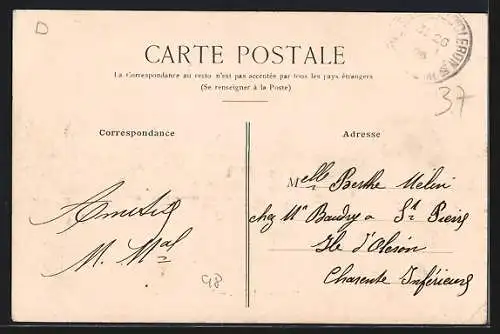 D
CARTE POSTALE
La Correspondance au recto n'est pas acceptée par tous les pays étrangers
(Se renseigner à la Poste)
37
Correspondance
Adresse
Melle Berthe Melin
chez Mr Baudry a St Pierre
Ile d'Oléron
Charente Inférieure
Amitiés
M. Mal
98